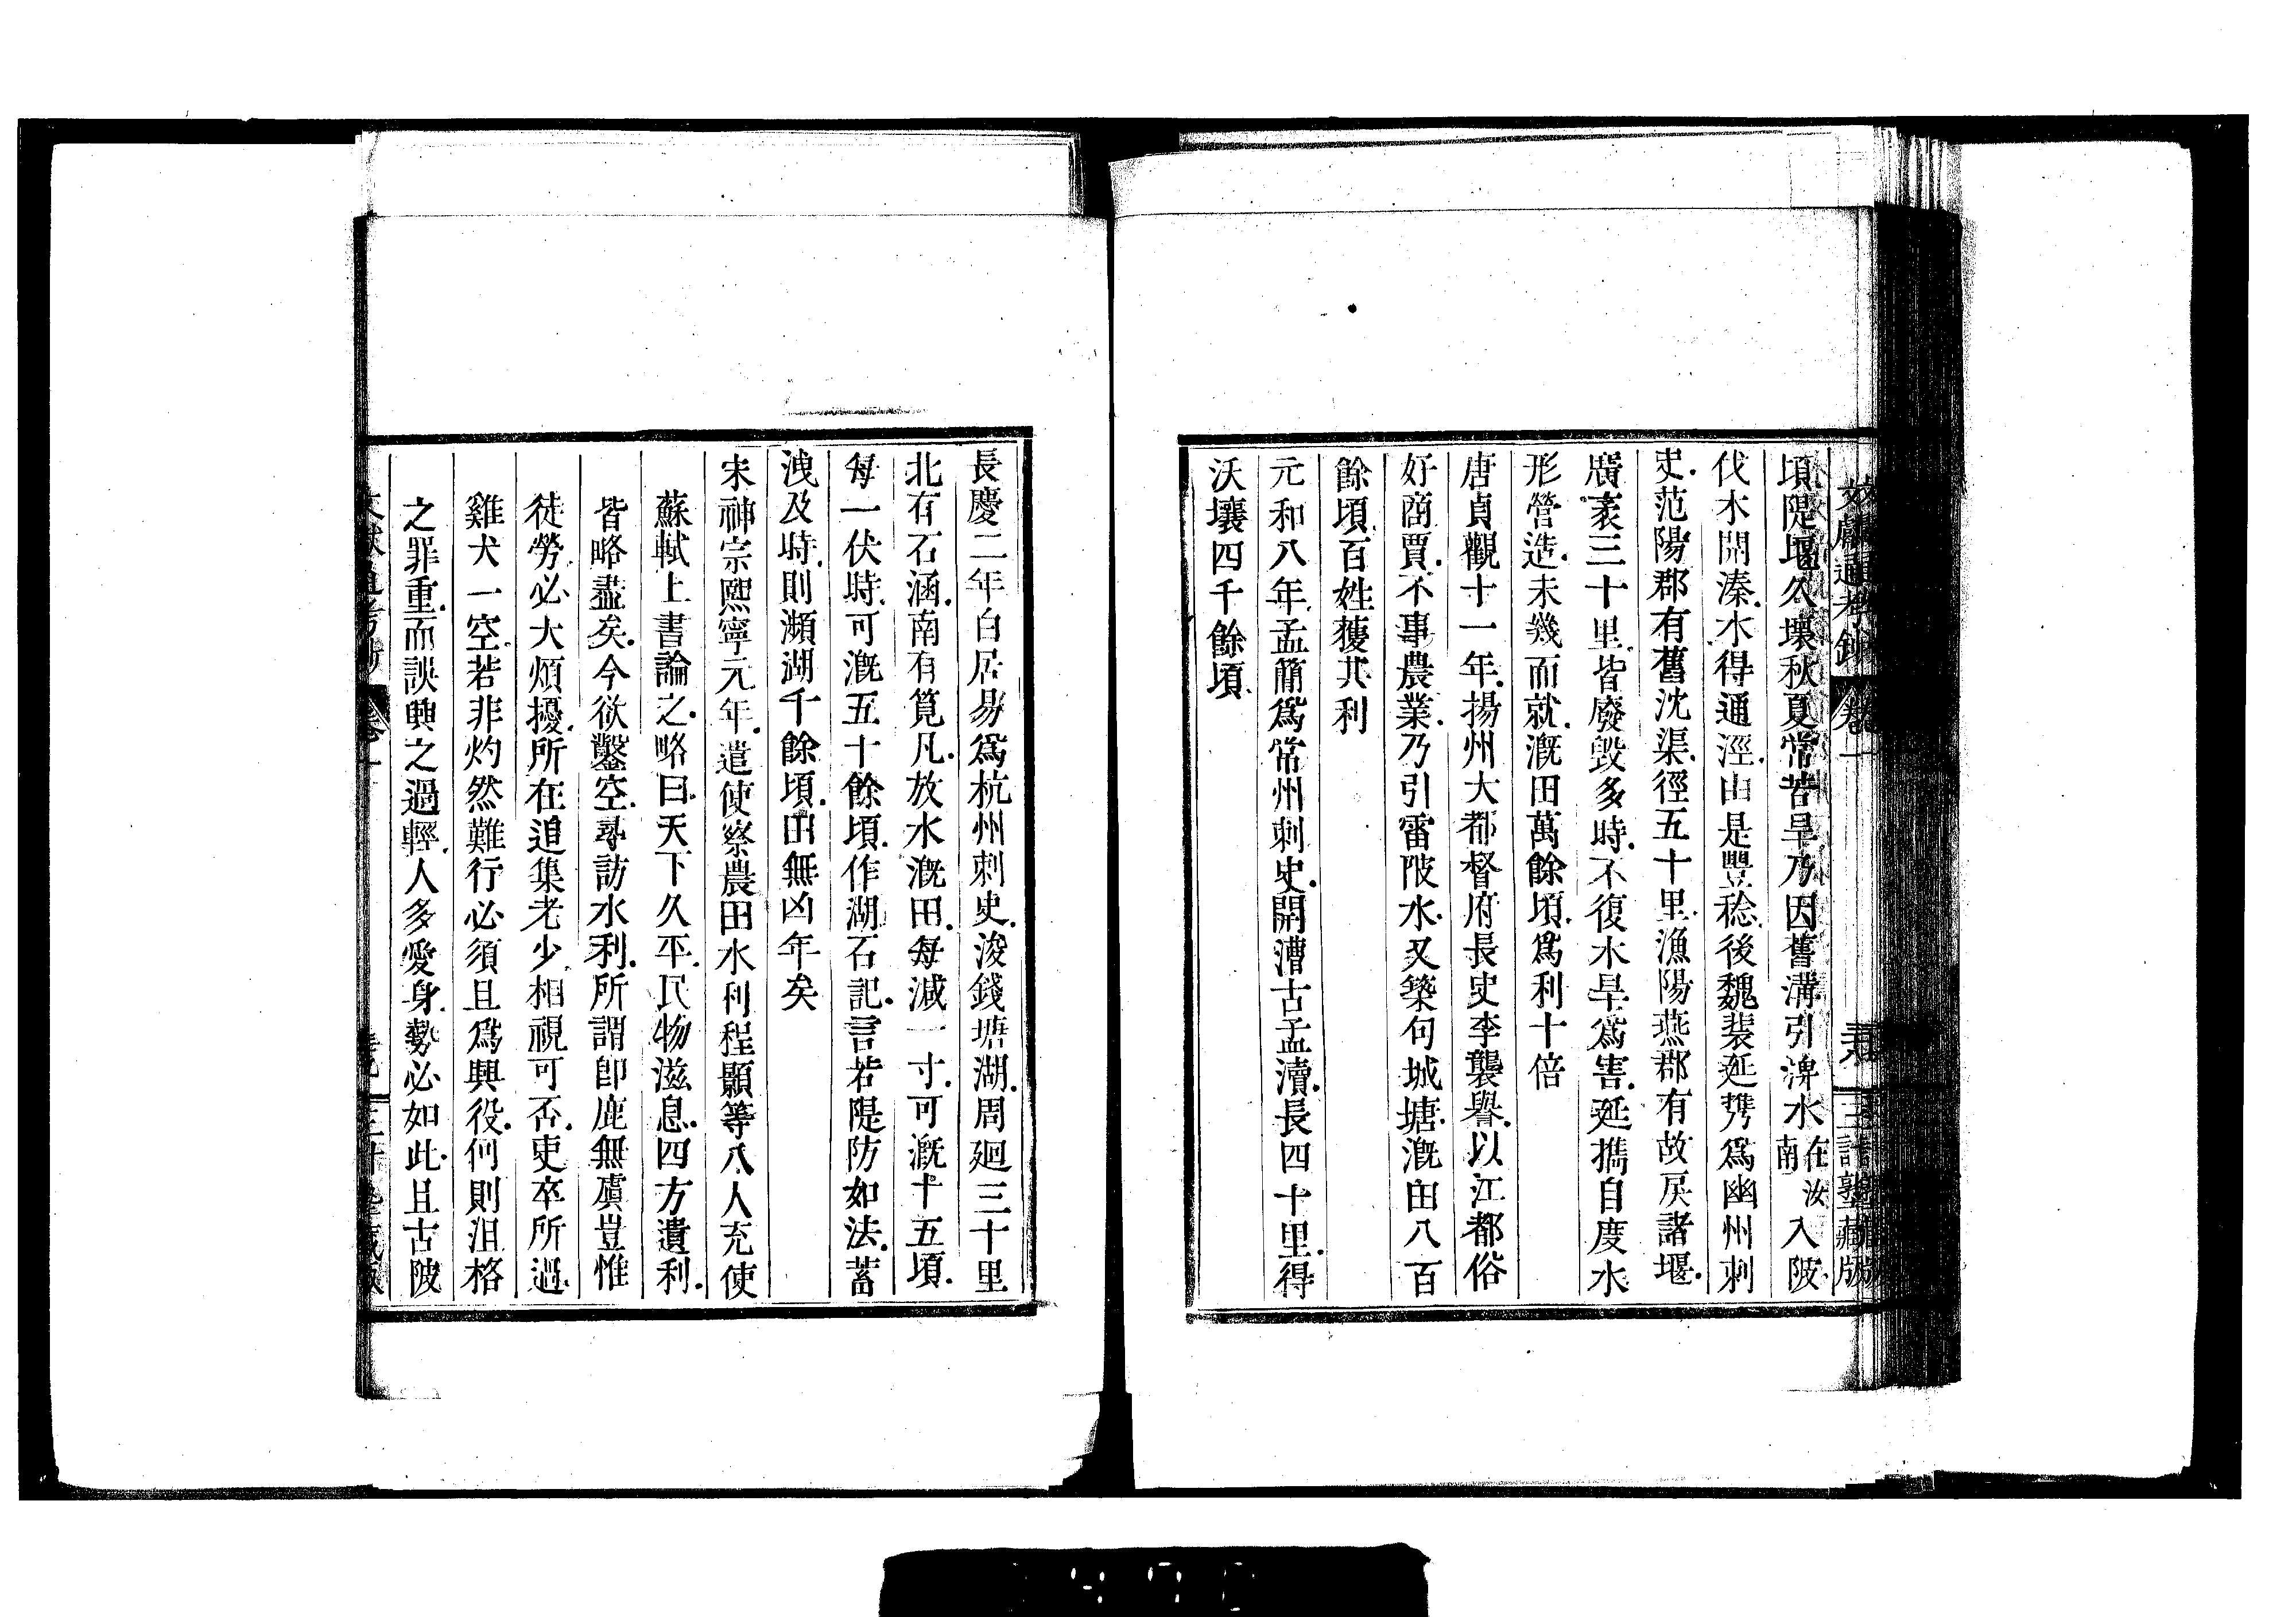 文獻通考鈔 卷一 三詩塾藏版
頃隄堰久壞秋夏常苦旱乃因舊溝引渒水在汝南入陂
伐木開溱水得通涇由是豐稔後魏裴延㑺爲幽州刺
史范陽郡有舊沈渠徑五十里漁陽燕郡有故戾諸堰
廣袤三十里皆廢毀多時不復水旱爲害延攜自度水
形營造未幾而就漑田萬餘頃爲利十倍
唐貞觀十一年揚州大都督府長史李襲譽以江都俗
好商賈不事農業乃引雷陂水又築句城塘漑田八百
餘頃百姓獲其利
元和八年孟簡爲常州刺史開漕古孟瀆長四十里得
沃壤四千餘頃
長慶二年白居易爲杭州刺史浚錢塘湖周廻三十里
北有石涵南有筧凡放水漑田每減一寸可漑十五頃
每一伏時可漑五十餘頃作湖石記言若隄防如法蓄
洩及時則瀕湖千餘頃田無凶年矣
宋神宗熙寧元年遣使察農田水利程顥等八人充使
蘇軾上書論之略曰天下久平民物滋息四方遺利
皆略盡矣今欲鑿空尋訪水利所謂卽鹿無虞豈惟
徒勞必大煩擾所在追集老少相視可否吏卒所過
雞犬一空若非灼然難行必須且爲興役何則沮格
之罪重而誤興之過輕人多愛身勢必如此且古陂